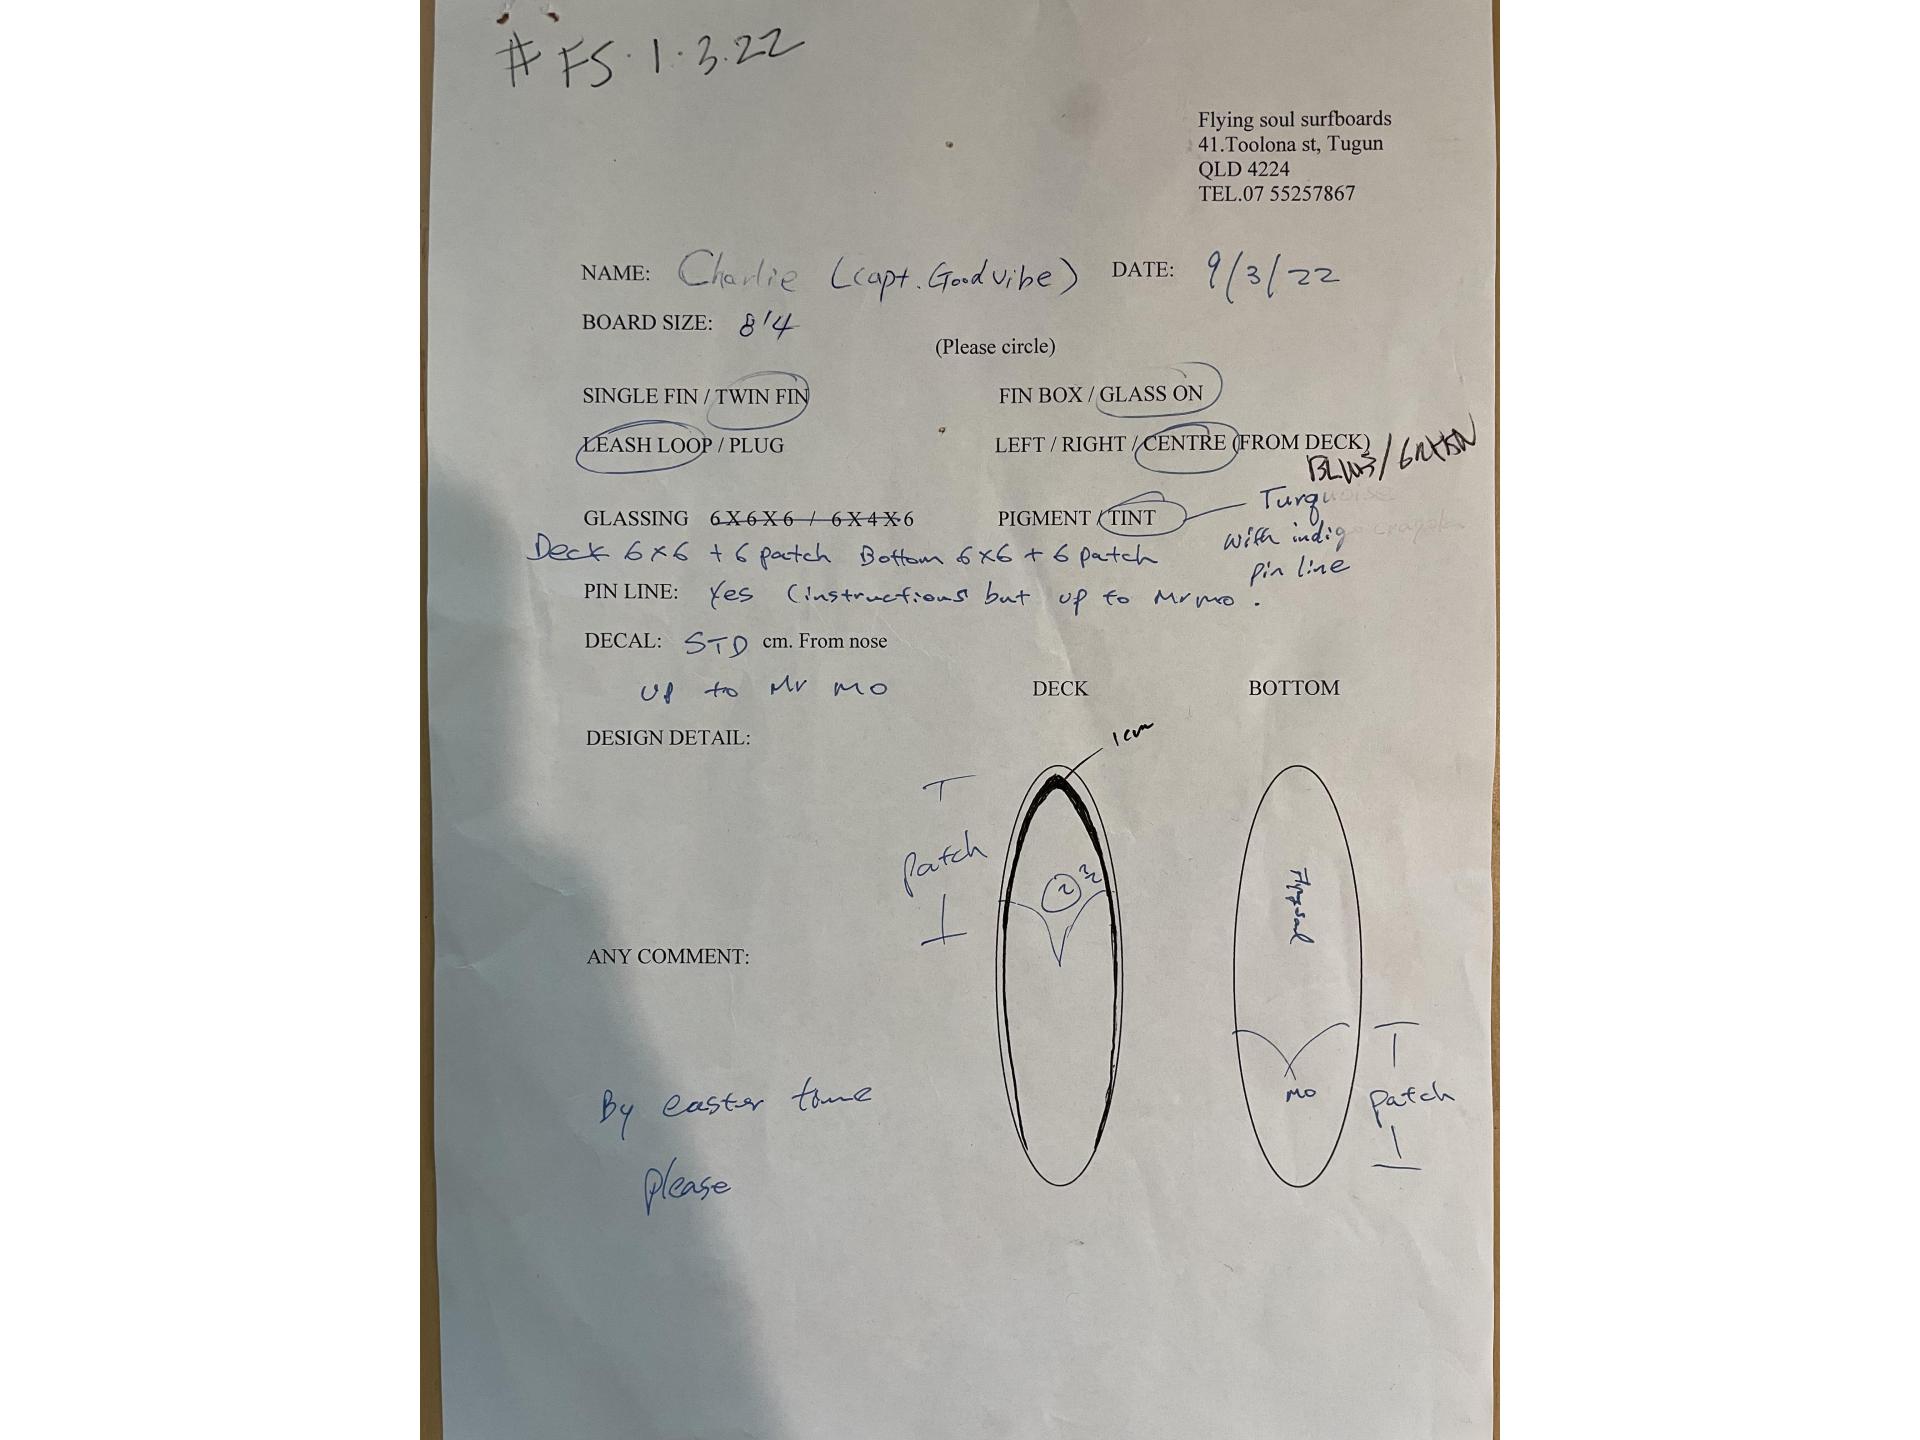 # FS.1.3.22
Flying soul surfboards
41.Toolona st, Tugun
QLD 4224
TEL.07 55257867
NAME: Charlie (Capt. Good vibe) DATE: 9/3/22
BOARD SIZE: 8'4
(Please circle)
SINGLE FIN / TWIN FIN FIN BOX / GLASS ON
LEASH LOOP / PLUG LEFT / RIGHT / CENTRE (FROM DECK)
GLASSING 6X6X6 / 6X4X6 PIGMENT / TINT Turquoise
Deck 6x6 + 6 patch Bottom 6x6 + 6 patch with indigo
pin line
PIN LINE: Yes (instructions but up to Mr mo.
DECAL: STD cm. From nose
up to Mr mo DECK BOTTOM
DESIGN DETAIL:
1cm
patch
2
Flying soul
ANY COMMENT:
mo
patch
By easter time
please